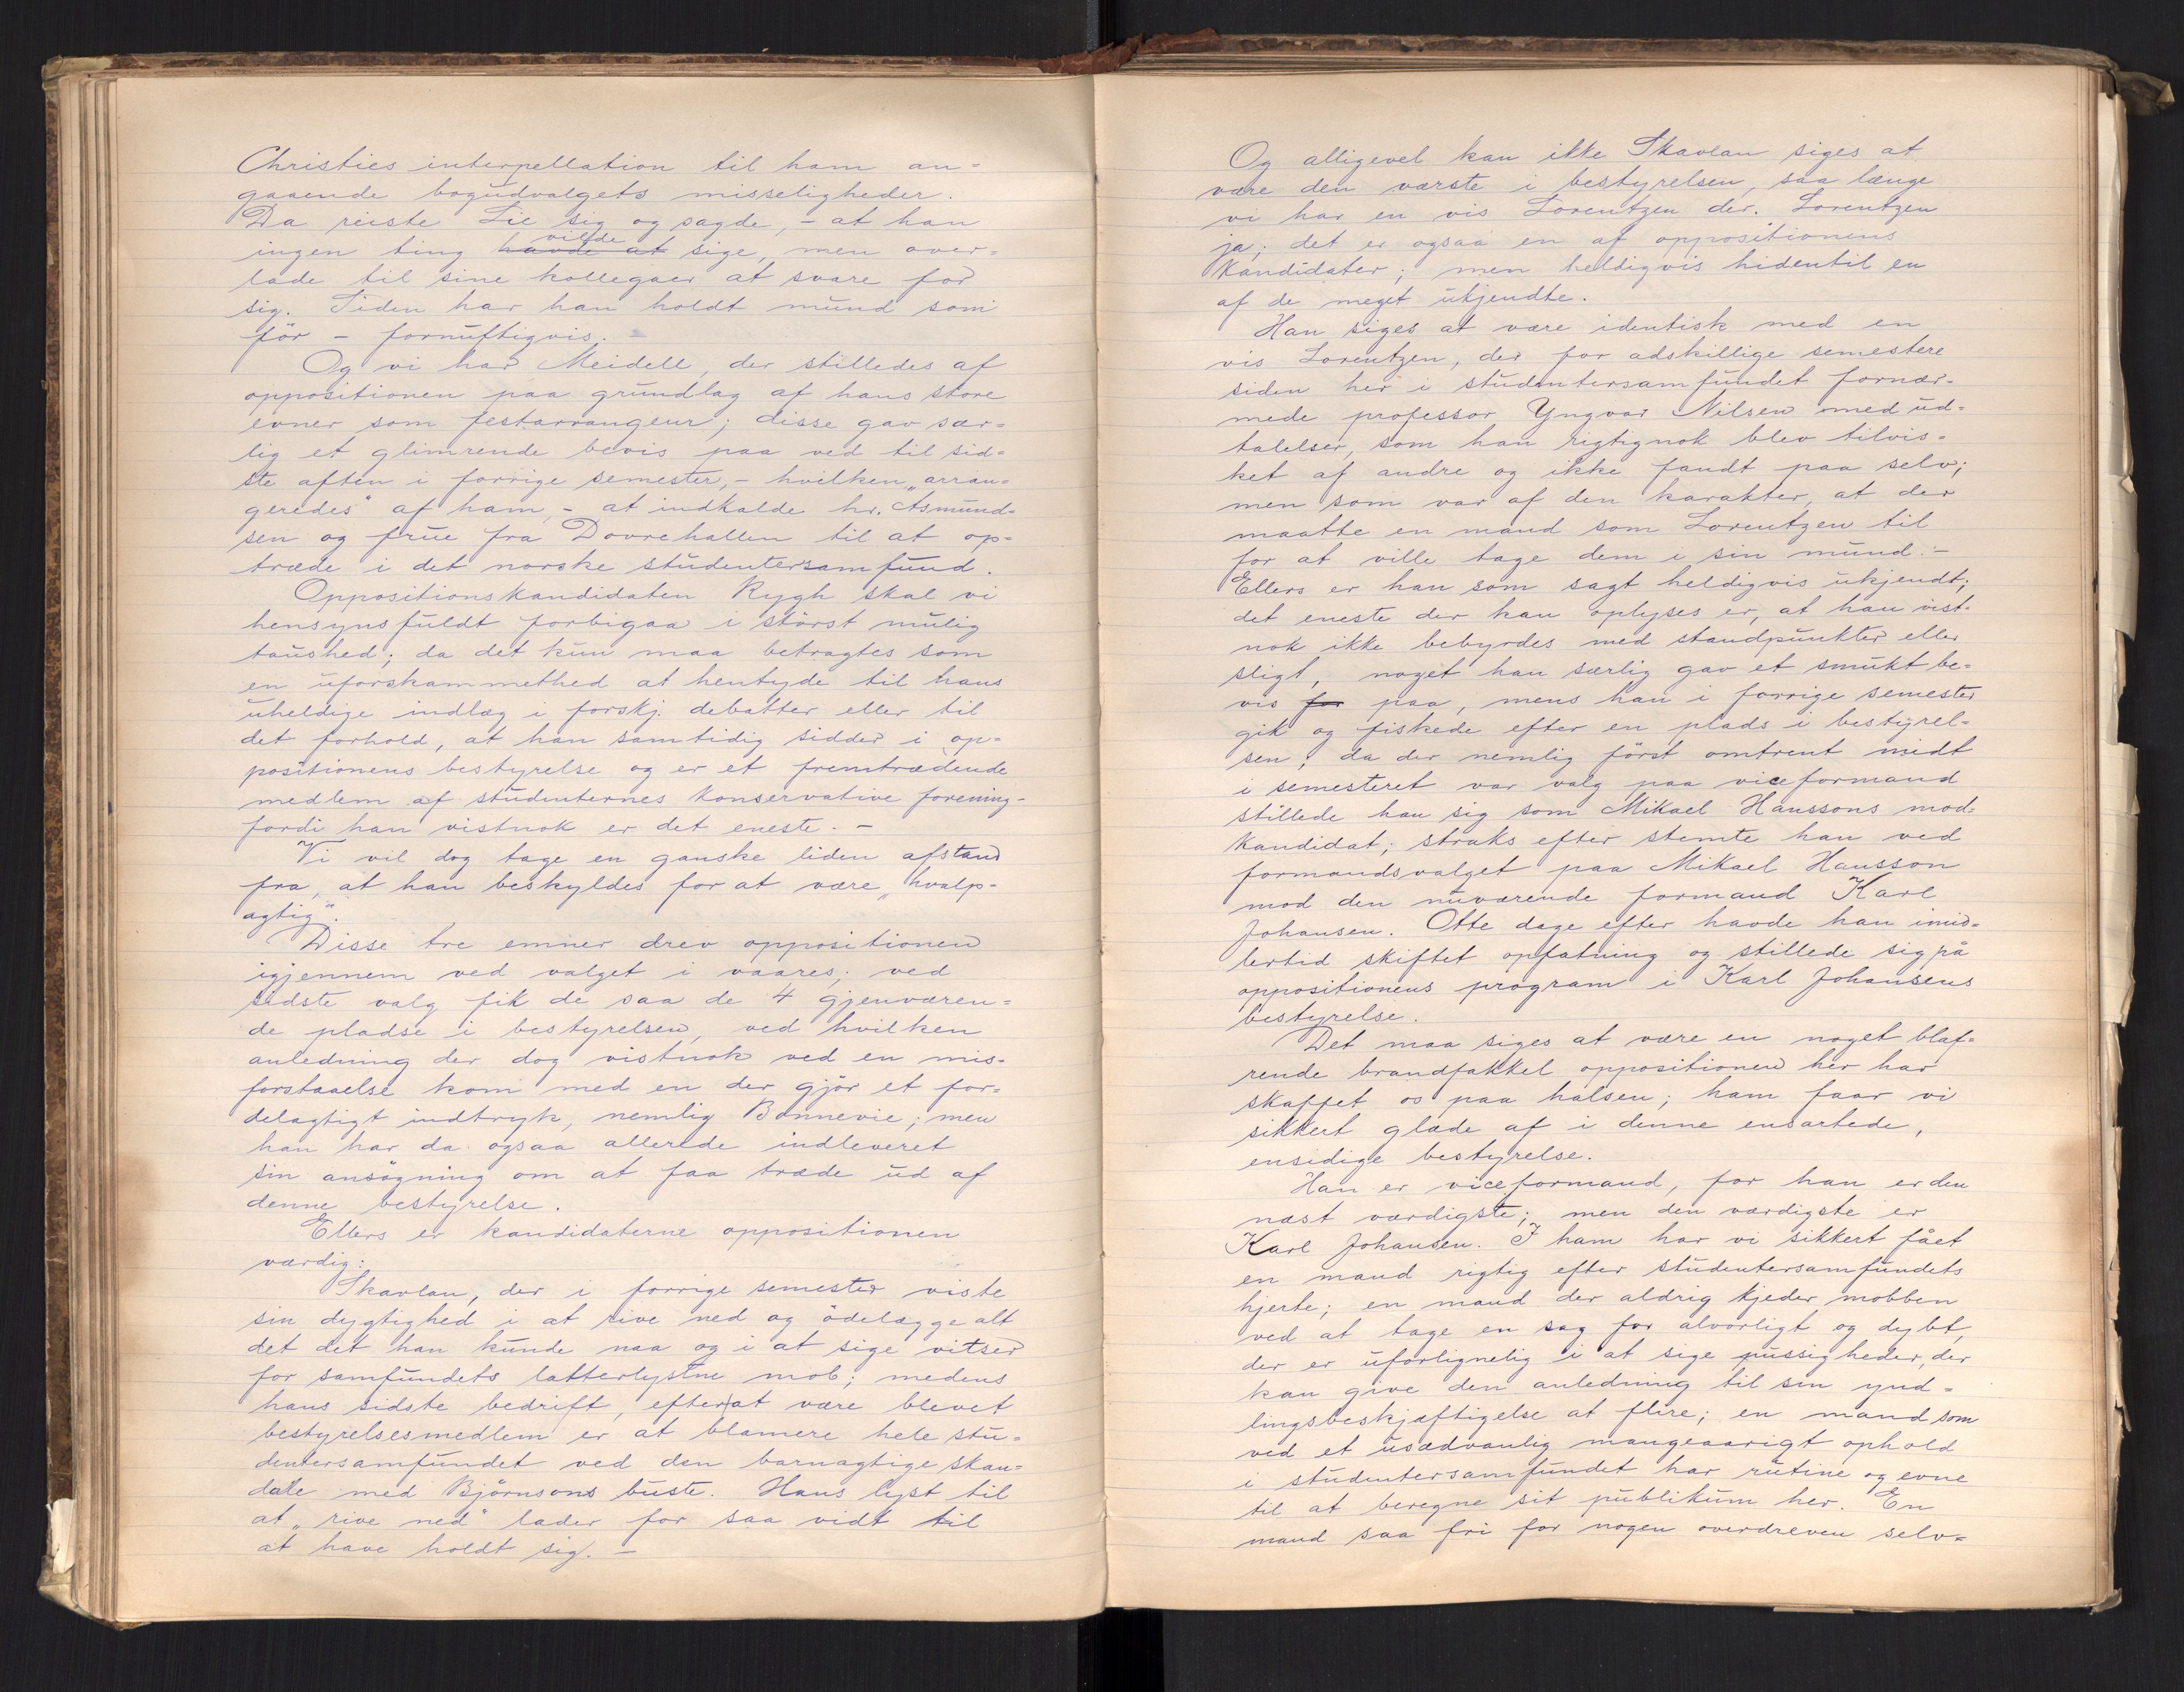 Christies interpellation til ham an=
gaaende bogudvalgets misseligheder.
Da reiste Lie sig og sagde, – at han
vilde
ingen ting havde at sige, men over=
lade til sine kollegaer at svare for
sig. Siden har han holdt mund som
før – fornuftigvis.
Og vi har Meidell, der stilledes af
oppositionen paa grundlag af hans store
evner som festarrangeur; disse gav sær=
lig et glimrende bevis paa ved til sid=
ste aften i forrige semester, – hvilken „arran=
geredes" af ham, – at indkalde hr. Asmund=
sen og frue fra Dovrehallen til at op=
træde i det norske studentersamfund.
Oppositionskandidaten Rygh skal vi
hensynsfuldt forbigaa i størst mulig
taushed; da det kun maa betragtes som
en uforskammethed at hentyde til hans
uheldige indlæg i forskj. debatter eller til
det forhold, at han samtidig sidder i op=
positionens bestyrelse og er et fremtrædende
medlem af studenternes konservative forening –
fordi han vistnok er det eneste. –
Vi vil dog tage en ganske liden afstand
fra, at han beskyldes for at være „hvalp-
agtig".
Disse tre emner drev oppositionen
igjennem ved valget i vaares; ved
sidste valg fik de saa de 4 gjenværen=
de pladse i bestyrelsen, ved hvilken
anledning der dog vistnok ved en mis-
forstaaelse kom med en der gjør et for=
delagtigt indtryk, nemlig Bonnevie; men
han har da ogsaa allerede indleveret
sin ansøgning om at faa træde ud af
denne bestyrelse.
Ellers er kandidaterne oppositionen
værdig:
Skavlan, der i forrige semester viste
sin dygtighed i at rive ned og ødelægge alt
det det han kunde naa og i at sige vitser
for samfundets latterlystne mob; medens
hans sidste bedrift, efter at være blevet
bestyrelsesmedlem er at blamere hele stu=
dentersamfundet ved den barnagtige skan=
dale med Bjørnsons buste. Hans lyst til
at „rive ned" lader for saa vidt til
at have holdt sig. –
Og alligevel kan ikke Skavlan siges at
være den værste i bestyrelsen, saa længe
vi har en vis Lorentzen der. Lorentzen
ja; det er ogsaa en af oppositionens
kandidater; men heldigvis hidentil en
af de meget ukjendte.
Han siges at være identisk med en
vis Lorentzen, der for adskillige semestere
siden her i studentersamfundet fornær-
mede professor Yngvar Nilsen med ud=
talelser, som han rigtignok blev tilvis-
ket af andre og ikke fandt paa selv;
men som var af den karakter, at der
maatte en mand som Lorentzen til
for at ville tage dem i sin mund. –
Ellers er han som sagt heldigvis ukjendt;
det eneste der kan oplyses er, at han vist-
nok ikke bebyrdes med standpunkter eller
sligt, noget han særlig gav et smukt be=
vis for paa, mens han i forrige semester
gik og fiskede efter en plads i bestyrel=
sen; da der nemlig først omtrent midt
i semesteret var valg paa viceformand
stillede han sig som Mikael Hanssons mod-
kandidat; straks efter stemte han ved
formandsvalget paa Mikael Hansson
mod den nuværende formand Karl
Johansen. Otte dage efter havde han imid=
lertid skiftet opfatning og stillede sig på
oppositionens program i Karl Johansens
bestyrelse.
Det maa siges at være en noget blaf=
rende brandfakkel oppositionen her har
skaffet os paa halsen; ham faar vi
sikkert glæde af i denne ensartede,
ensidige bestyrelse.
Han er viceformand, for han er den
næst værdigste; men den værdigste er
Karl Johansen. I ham har vi sikkert fået
en mand rigtig efter studentersamfundets
hjerte; en mand der aldrig kjeder mobben
ved at tage en sag for alvorligt og dybt,
der er uforlignelig i at sige pussigheder, der
kan give den anledning til sin ynd=
lingsbeskjæftigelse at flire; en mand som
ved et usædvanlig mangeaarigt ophold
i studentersamfundet har rutine og evne
til at beregne sit publikum her. En
mand saa fri for nogen overdreven selv=